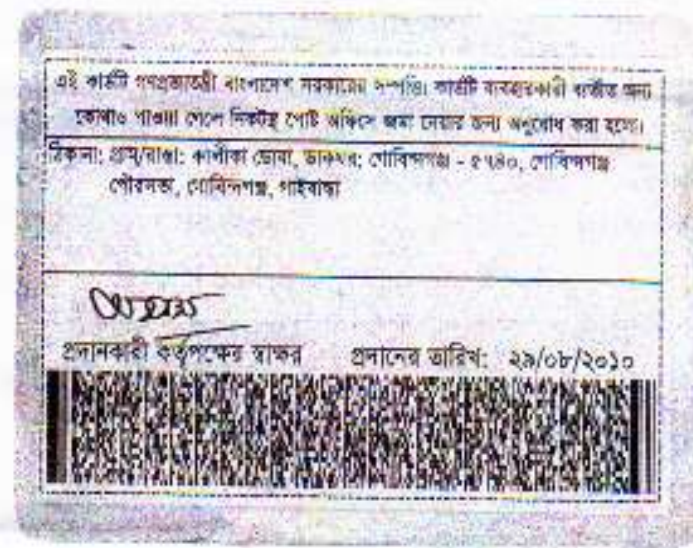 এই কার্ডটি গণপ্রজাতন্ত্রী বাংলাদেশ সরকারের সম্পত্তি। কার্ডটি ব্যবহারকারী ব্যতীত অন্য
কোথাও পাওয়া গেলে নিকটস্থ পোষ্ট অফিসে জমা দেয়ার জন্য অনুরোধ করা হলো।
ঠিকানা: গ্রাম/রাস্তা: কালীকা ডোবা, ডাকঘর: গোবিন্দগঞ্জ - ৫৭৪০, গোবিন্দগঞ্জ
পৌরসভা, গোবিন্দগঞ্জ, গাইবান্ধা
প্রদানকারী কর্তৃপক্ষের স্বাক্ষর প্রদানের তারিখ: ২৯/০৮/২০১০